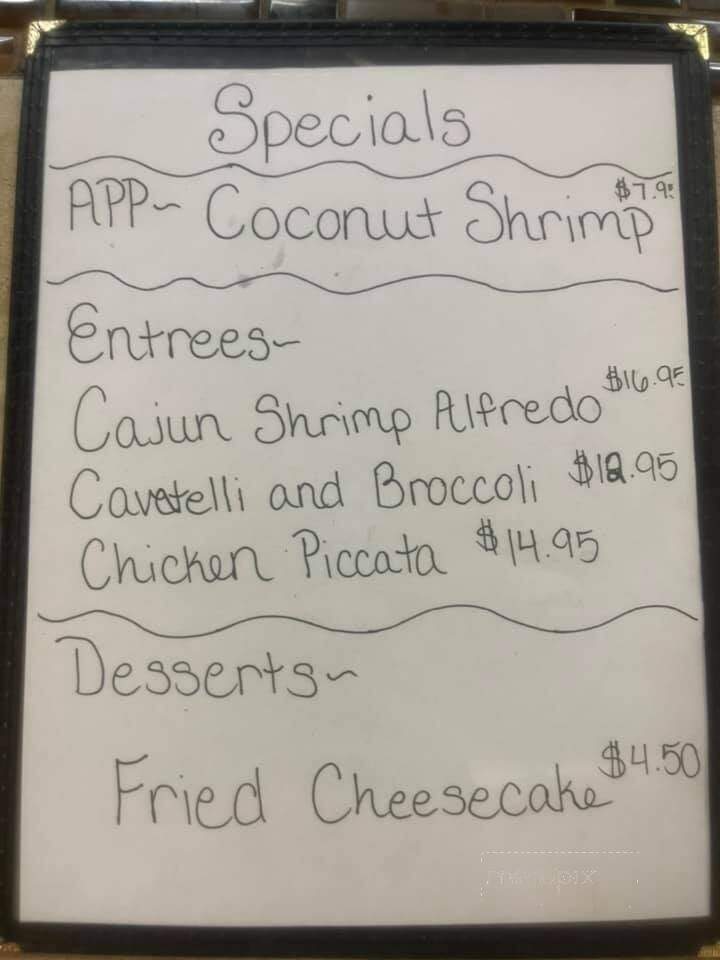 Specials
APP~ Coconut Shrimp $7.95
Entrees~
Cajun Shrimp Alfredo $16.95
Cavatelli and Broccoli $12.95
Chicken Piccata $14.95
Desserts~
Fried Cheesecake $4.50